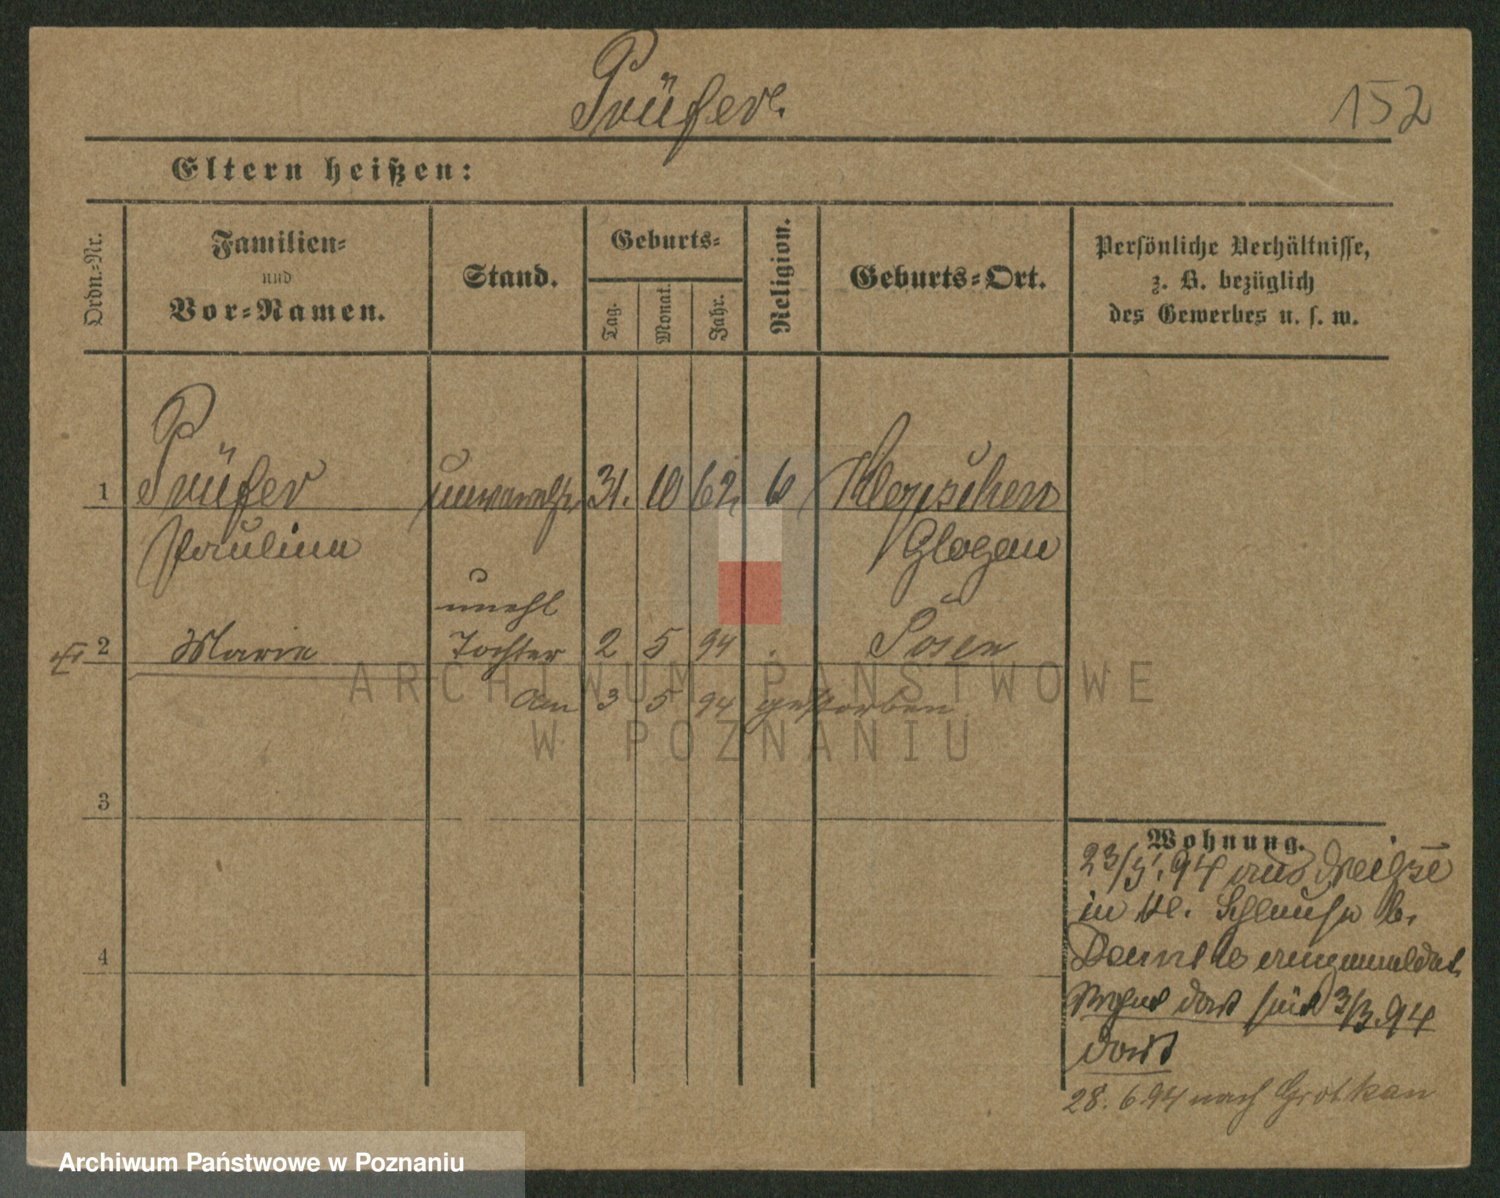 Prüfer.
152
Eltern heißen:
Ordn.-Nr.
Familien-
und
Vor-Namen.
Stand.
Geburts-
Tag.
Monat.
Jahr.
Religion.
Geburts-Ort.
Persönliche Verhältnisse,
z. B. bezüglich
des Gewerbes u. s. w.
1 Prüfer 31. 10 62
Paulina Glogau
unehl
2 Marie Tochter 2 5 94 Posen
am 3 5 94 gestorben
3
4
Wohnung.
23/5. 94 aus
in Kl.
dort seit 3/3.94
dort
28. 6 94 nach Grottkau
ARCHIWUM PAŃSTWOWE
W POZNANIU
Archiwum Państwowe w Poznaniu